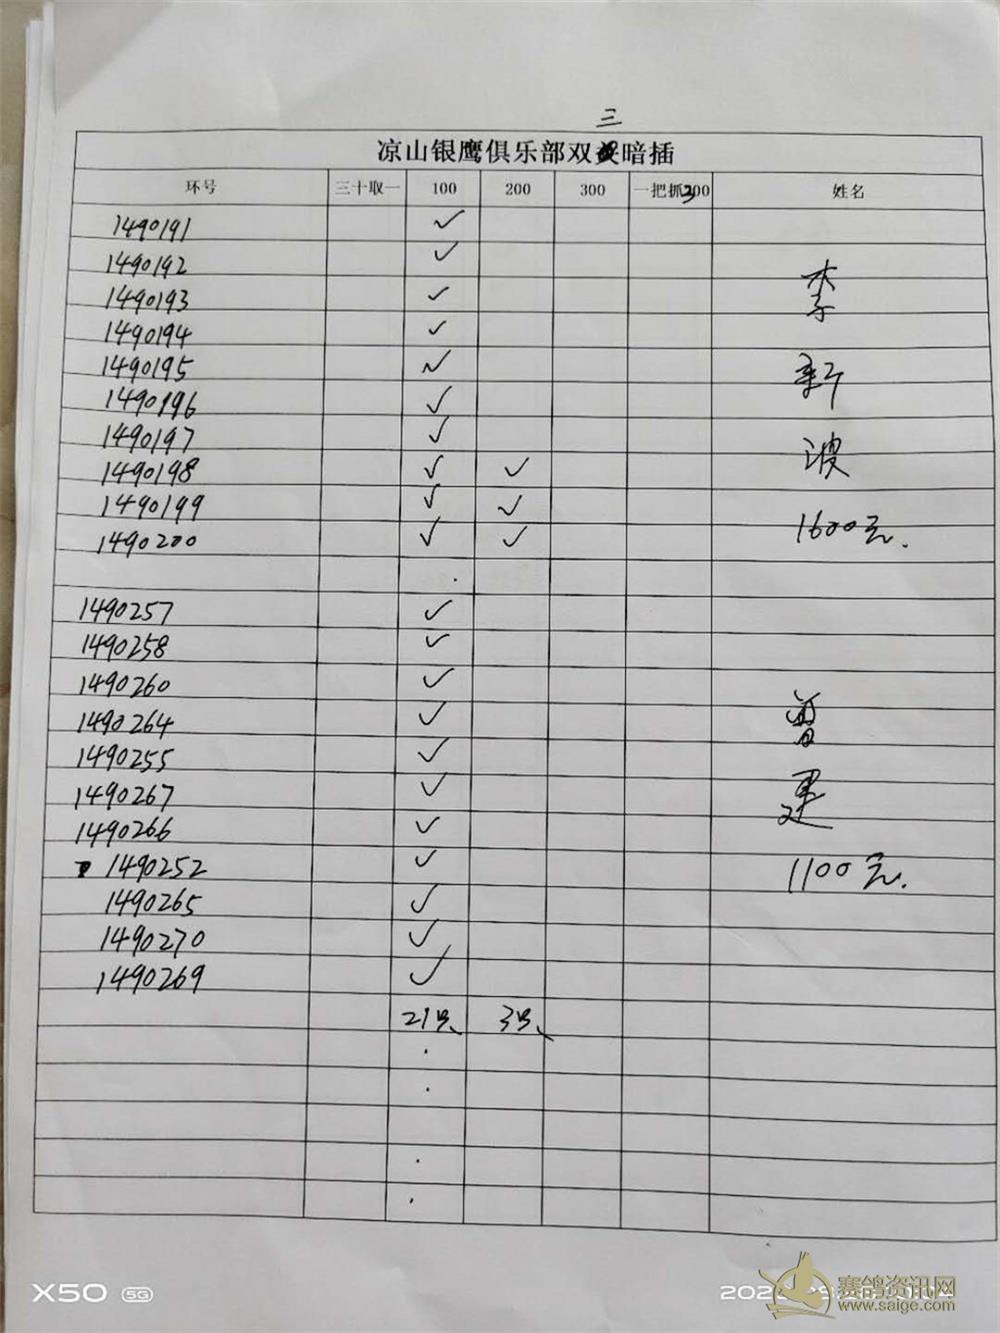 三
凉山银鹰俱乐部双暗插
环号 三十取一 100 200 300 一把抓300 姓名
1490191 ✓
1490192 ✓
1490193 ✓
1490194 ✓
1490195 ✓
1490196 ✓
1490197 ✓
1490198 ✓ ✓
1490199 ✓ ✓
1490200 ✓ ✓
李
新
波
1600元.
1490257 ✓
1490258 ✓
1490260 ✓
1490264 ✓
1490255 ✓
1490267 ✓
1490266 ✓
1490252 ✓
1490265 ✓
1490270 ✓
1490269 ✓
曾
建
1100元.
21号、 3号、
X50 5G
赛鸽资讯网
www.saige.com